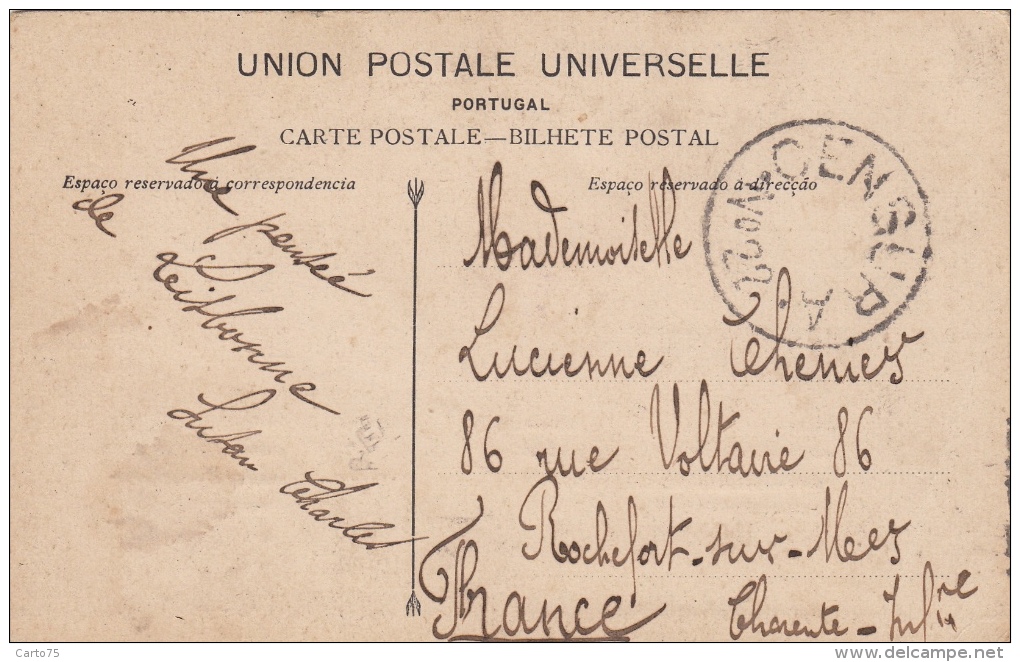 UNION POSTALE UNIVERSELLE
PORTUGAL
CARTE POSTALE—BILHETE POSTAL
Espaço reservado á correspondencia
Espaço reservado á direcção
CENSURA
Nº 22
Une pensée
de Lisbonne
Charles
Mademoiselle
Lucienne
86 rue Voltaire 86
Rochefort-sur-Mer
Charente-Infre
FRANCE
Carto75
delcampe.net